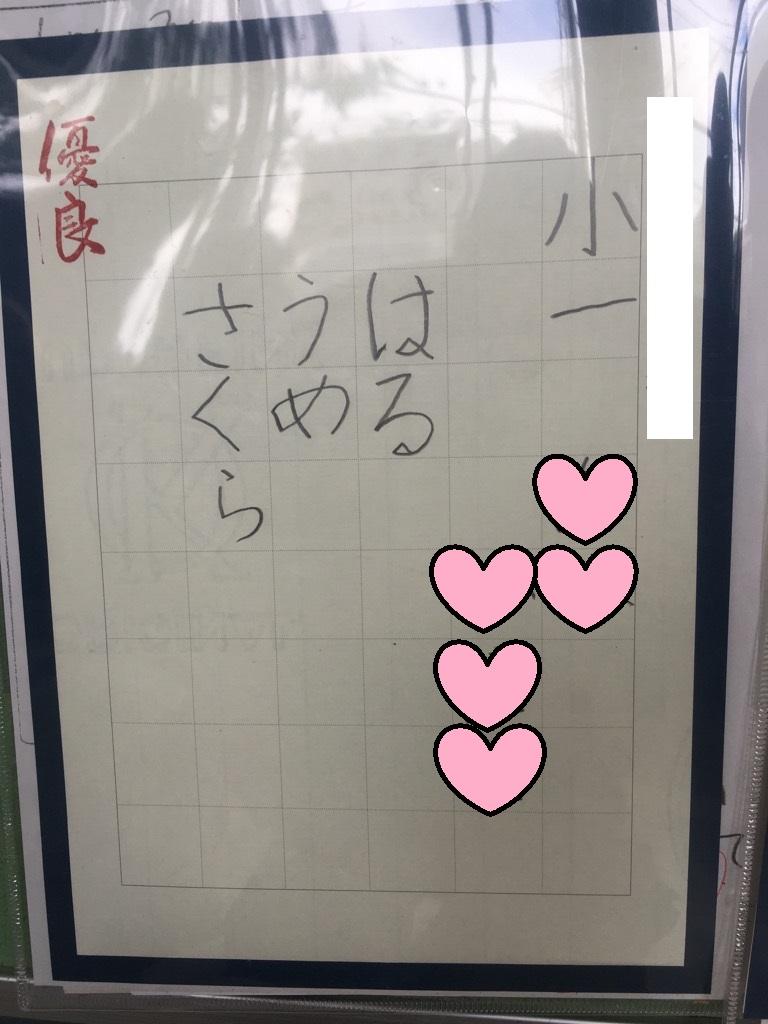 小一
はる
うめ
さくら
優良